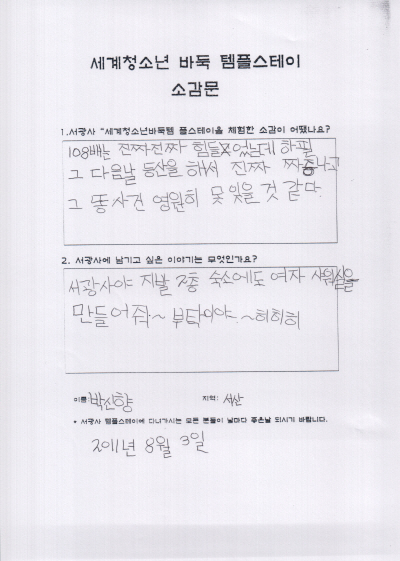 세계청소년 바둑 템플스테이
소감문
1.서광사 "세계청소년바둑템 플스테이을 체험한 소감이 어땠나요?
108배는 진짜진짜 힘들었는데 하필
그 다음날 등산을 해서 진짜 짜증나고
그 똥사건 영원히 못 잊을 것 같다.
2. 서광사에 남기고 싶은 이야기는 무엇인가요?
서광사야 지발 2층 숙소에도 여자 샤워실을
만들어줘~ 부탁이야.~히히히
이름 박신향 지역: 서산
* 서광사 템플스테이에 다녀가시는 모든 분들이 날마다 좋은날 되시기 바랍니다.
2011년 8월 3일